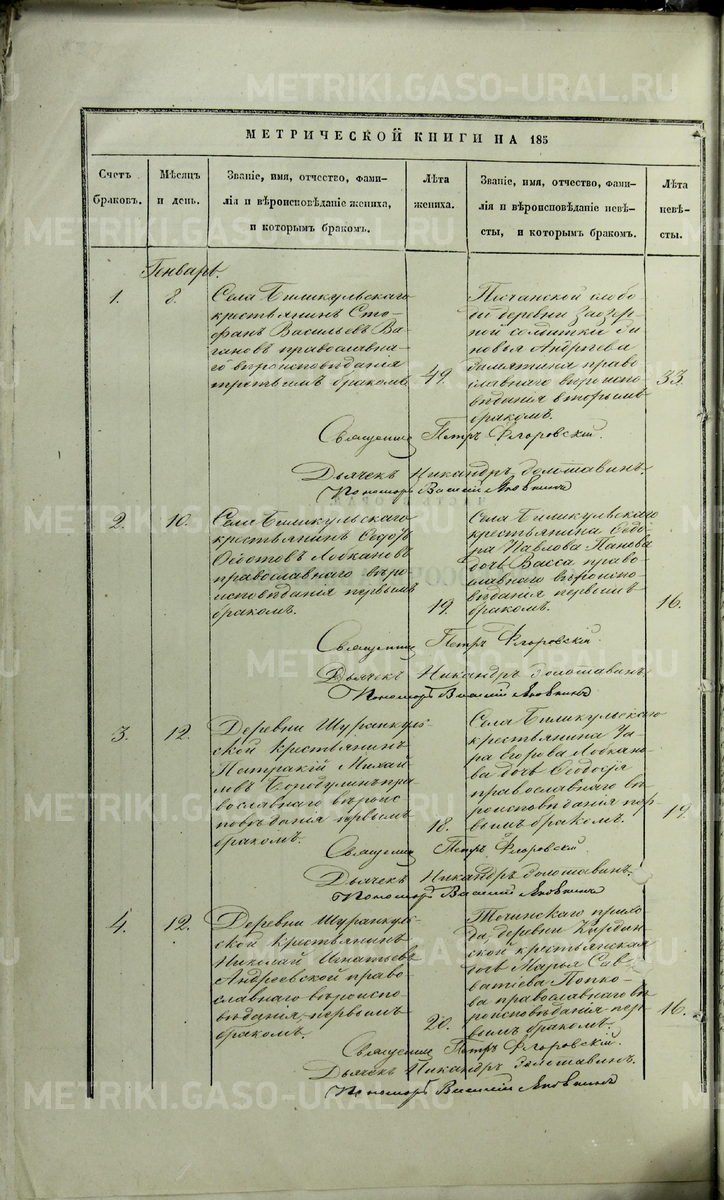 МЕТРИЧЕСКОЙ КНИГИ НА 185
Счетъ браковъ.
Мѣсяцъ и день.
Званіе, имя, отчество, фами-
лія и вѣроисповѣданіе жениха,
и которымъ бракомъ.
Лѣта жениха.
Званіе, имя, отчество, фами-
лія и вѣроисповѣданіе невѣ-
сты, и которымъ бракомъ.
Лѣта невѣ-
сты.
Генварь.
1.
8.
Села Биликульскаго
крестьянинъ Сте-
фанъ Васильевъ Ва-
гановъ православна-
го вѣроисповѣданія
третьимъ бракомъ
49.
Песчанской слобо-
ды деревни Заозер-
ной
Андреева
право-
славнаго вѣроиспо-
вѣданія вторымъ
бракомъ.
33.
Священникъ Петръ Флоровскій.
Дьячекъ Никандръ Золотавинъ.
Пономарь Василій Яковкинъ
2.
10.
Села Биликульскаго
крестьянинъ
Лобкановъ
православнаго вѣро-
исповѣданія первымъ
бракомъ.
19.
Села Биликульскаго
крестьянина Федо-
ра Павлова Панова
дочь Васса право-
славнаго вѣроиспо-
вѣданія первымъ
бракомъ.
16.
Священникъ Петръ Флоровскій.
Дьячекъ Никандръ Золотавинъ.
Пономарь Василій Яковкинъ
3.
12.
Деревни Шуранкуль-
ской крестьянинъ
Патракій Михай-
ловъ Бородулинъ пра-
вославнаго вѣроис-
повѣданія первымъ
бракомъ.
18.
Села Биликульскаго
крестьянина
Егорова Лобкано-
ва дочь Феодосья
православнаго вѣ-
роисповѣданія пер-
вымъ бракомъ.
19.
Священникъ Петръ Флоровскій
Дьячекъ Никандръ Золотавинъ.
Пономарь Василій Яковкинъ
4.
12.
Деревни Шуранкуль-
ской крестьянинъ
Николай Игнатьевъ
Андреевской право-
славнаго вѣроиспо-
вѣданія, первымъ
бракомъ.
20.
Течинскаго прихо-
да, деревни
ской крестьянская
дочь Марья Сав-
ватіева Попко-
ва православнаго вѣ-
роисповѣданія пер-
вымъ бракомъ.
16.
Священникъ Петръ Флоровскій.
Дьячекъ Никандръ Золотавинъ.
Пономарь Василій Яковкинъ
METRIKI.GASO-URAL.RU